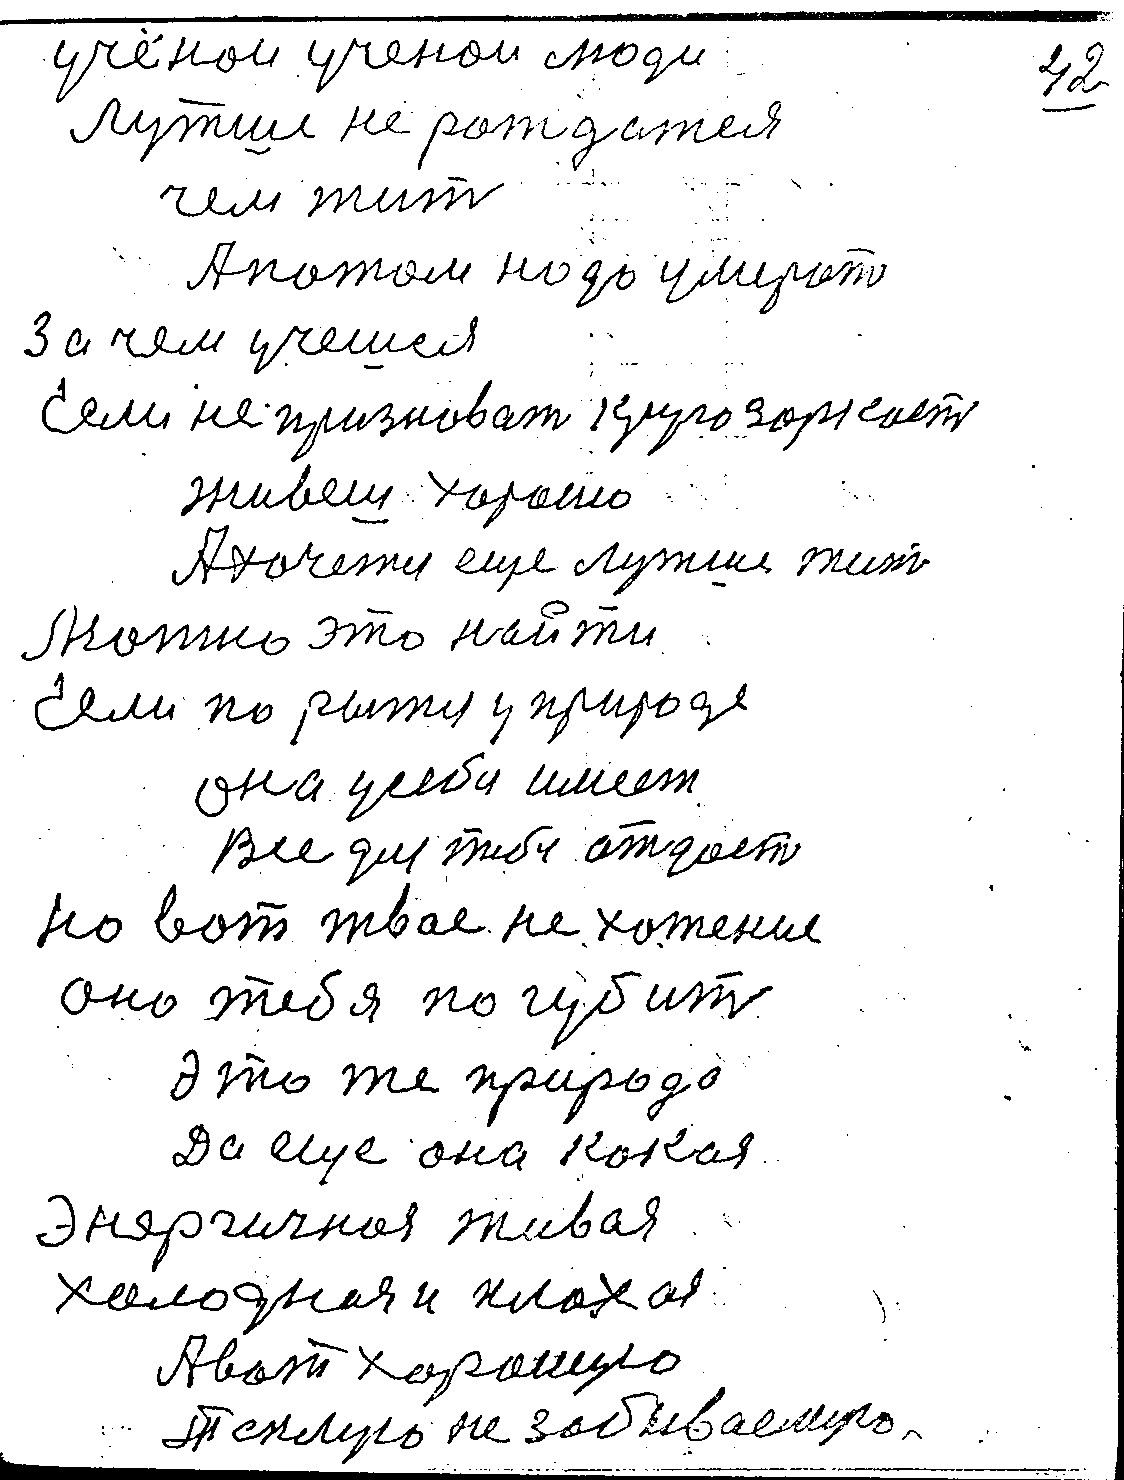 учёнои ученои люди
42
Лутше не рождатся
чем жит
А потом надо умират
За чем учешся
Если не признават кругозоркост
живеш хорошо
А хочетя еще лутше жит
Можно это найти
Если по рытя у природе
она у себя имеет
Все для тебя отдаст
Но вот твае не хотение
оно тебя по губит
Это же природа
Да еще она какая
Эняргичноя живая
холодная и плохая
А вот хорошую
Теплую не забываемую.